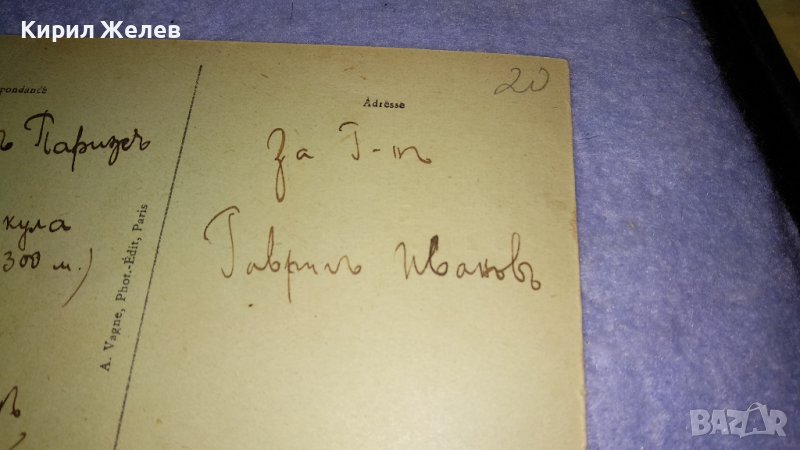 Кирил Желев
pondance
Adresse
20
ъ Парижъ
кула
300 м.)
A. Vagne, Phot.-Édit, Paris
За Г-нъ
Гаврилъ Ивановъ
BAZAR